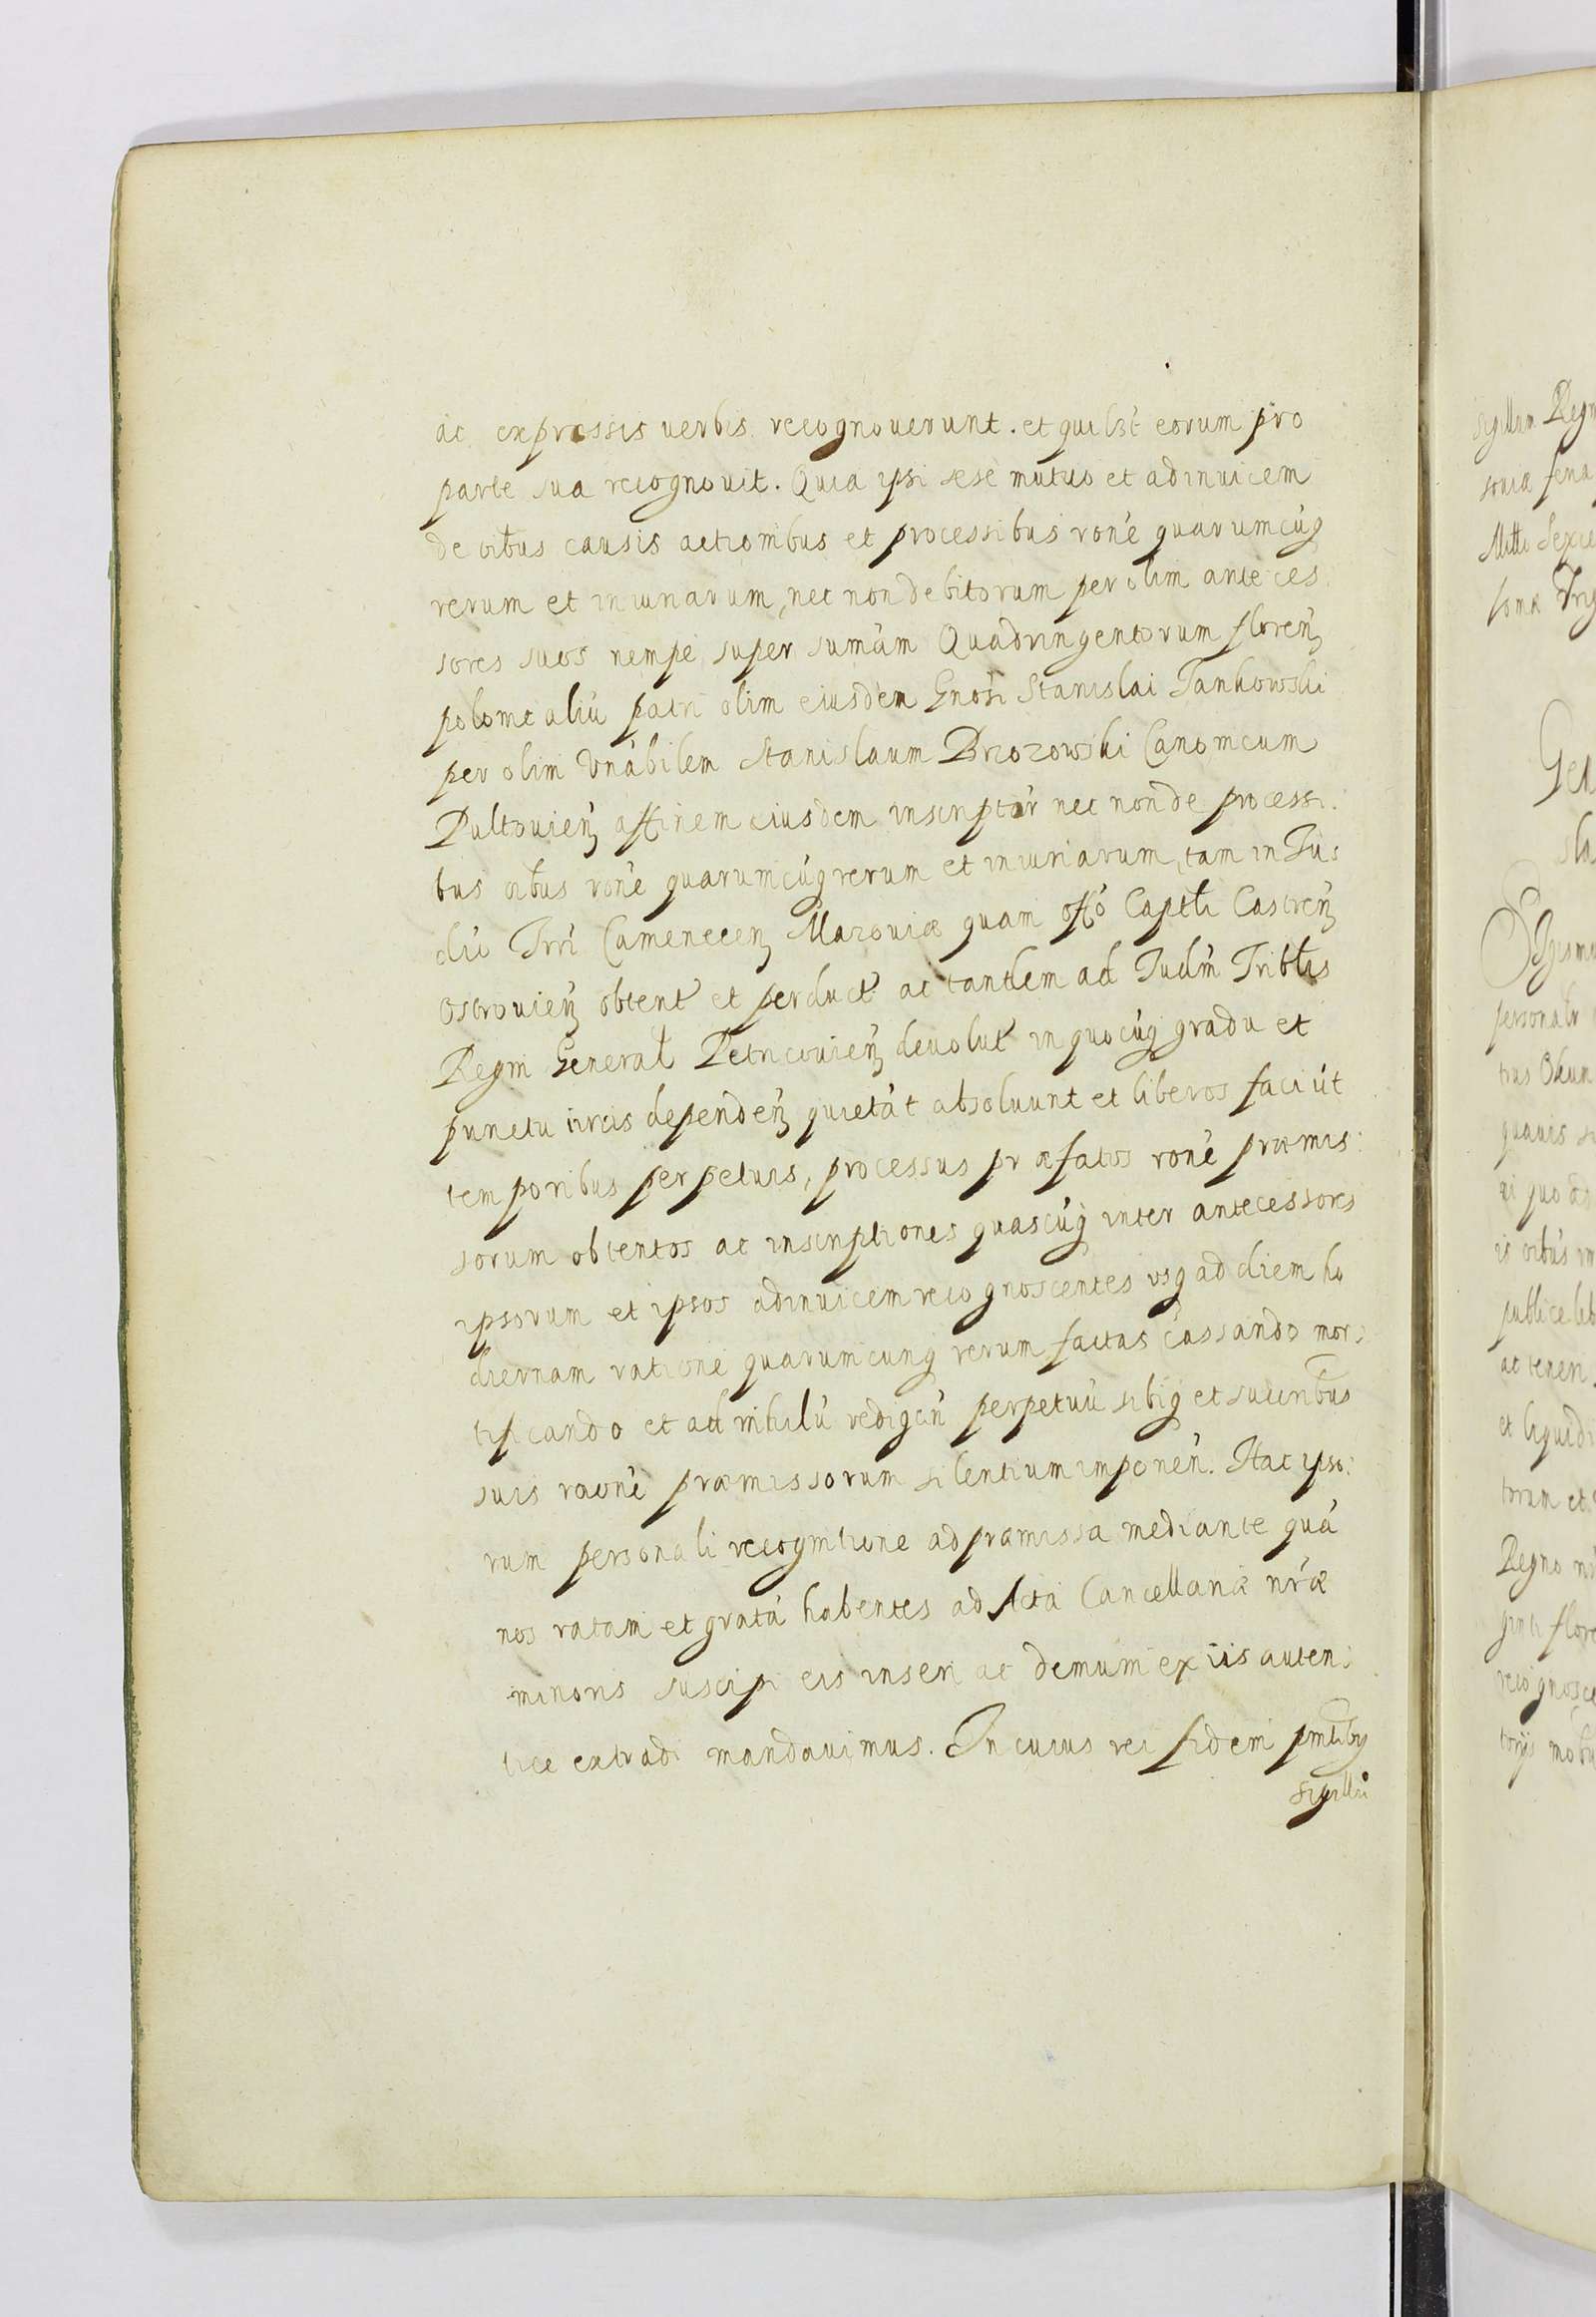 ac expressis verbis recognoverunt. et quilbt eorum pro
parte sua recognouit. Quia ipsi sese mutuo et adinuicem
de oibus causis actionibus et processibus rone quarumcuq
rerum et iniuriarum, nec non debitorum per olim anteces
sores suos nempe super sumam Quadringentorum floren
polonicaliu patri olim eiusdem Gnosi Stanislai Jankowski
per olim Vnabilem Stanislaum Brzozowski Canonicum
Pultouien affinem eiusdem inscriptor nec non de processi
bus oibus rone quarumcuq rerum et iniuriarum, tam in Ju:
dio Trri Camenecen Mazouiæ quam offo Captli Castren
Ostrouien obtent et perduct ac tandem ad Judm Triblis
Regni General Petricouien deuolut in quocuq gradu et
punctu iuris dependen quietat absoluunt et liberos faciut
temporibus perpetuis, processus præfatos rone præmis:
sorum obtentos ac inscriptiones quascuq inter antecessores
ipsorum et ipsos adinuicem recognoscentes usq ad diem ho
diernam ratione quarumcunq rerum factas cassando mor:
tificando et ad nihilu redigen perpetuu sibiq et succribus
suis raone præmissorum silentium imponen. Hac ipso:
rum personali recognitione ad præmissa mediante qua
nos ratam et grata habentes ad Acta Cancellariæ nræ
minoris suscipi eis inseri ac demum ex iis auten:
tice extradi mandauimus. In cuius rei fidem pntibq
Sigillu
sigillum Regn
Mitto Sexce
Ger
sla
personalr
quauis
publice
ac teneri
et liquidi
torum et
Regno
ginti flore
recognosce